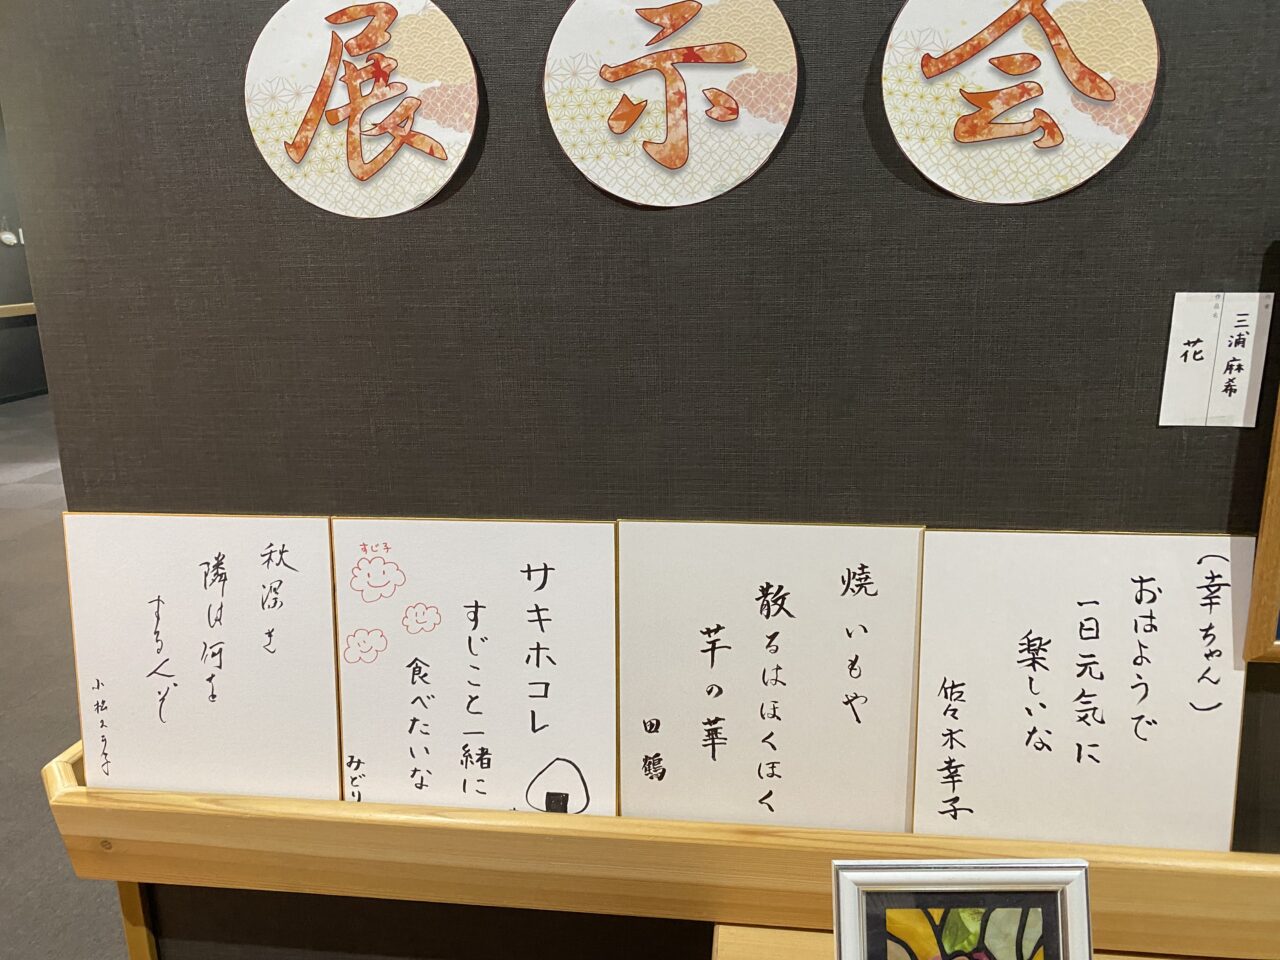 展示会
作品名
三浦麻希
花
（幸ちゃん）
おはようで
一日元気に
楽しいな
佐々木幸子
焼いもや
散るはほくほく
芋の華
田鶴
サキホコレ
すじこと一緒に
食べたいな
みどり
すじ子
秋深き
隣は何を
する人ぞ